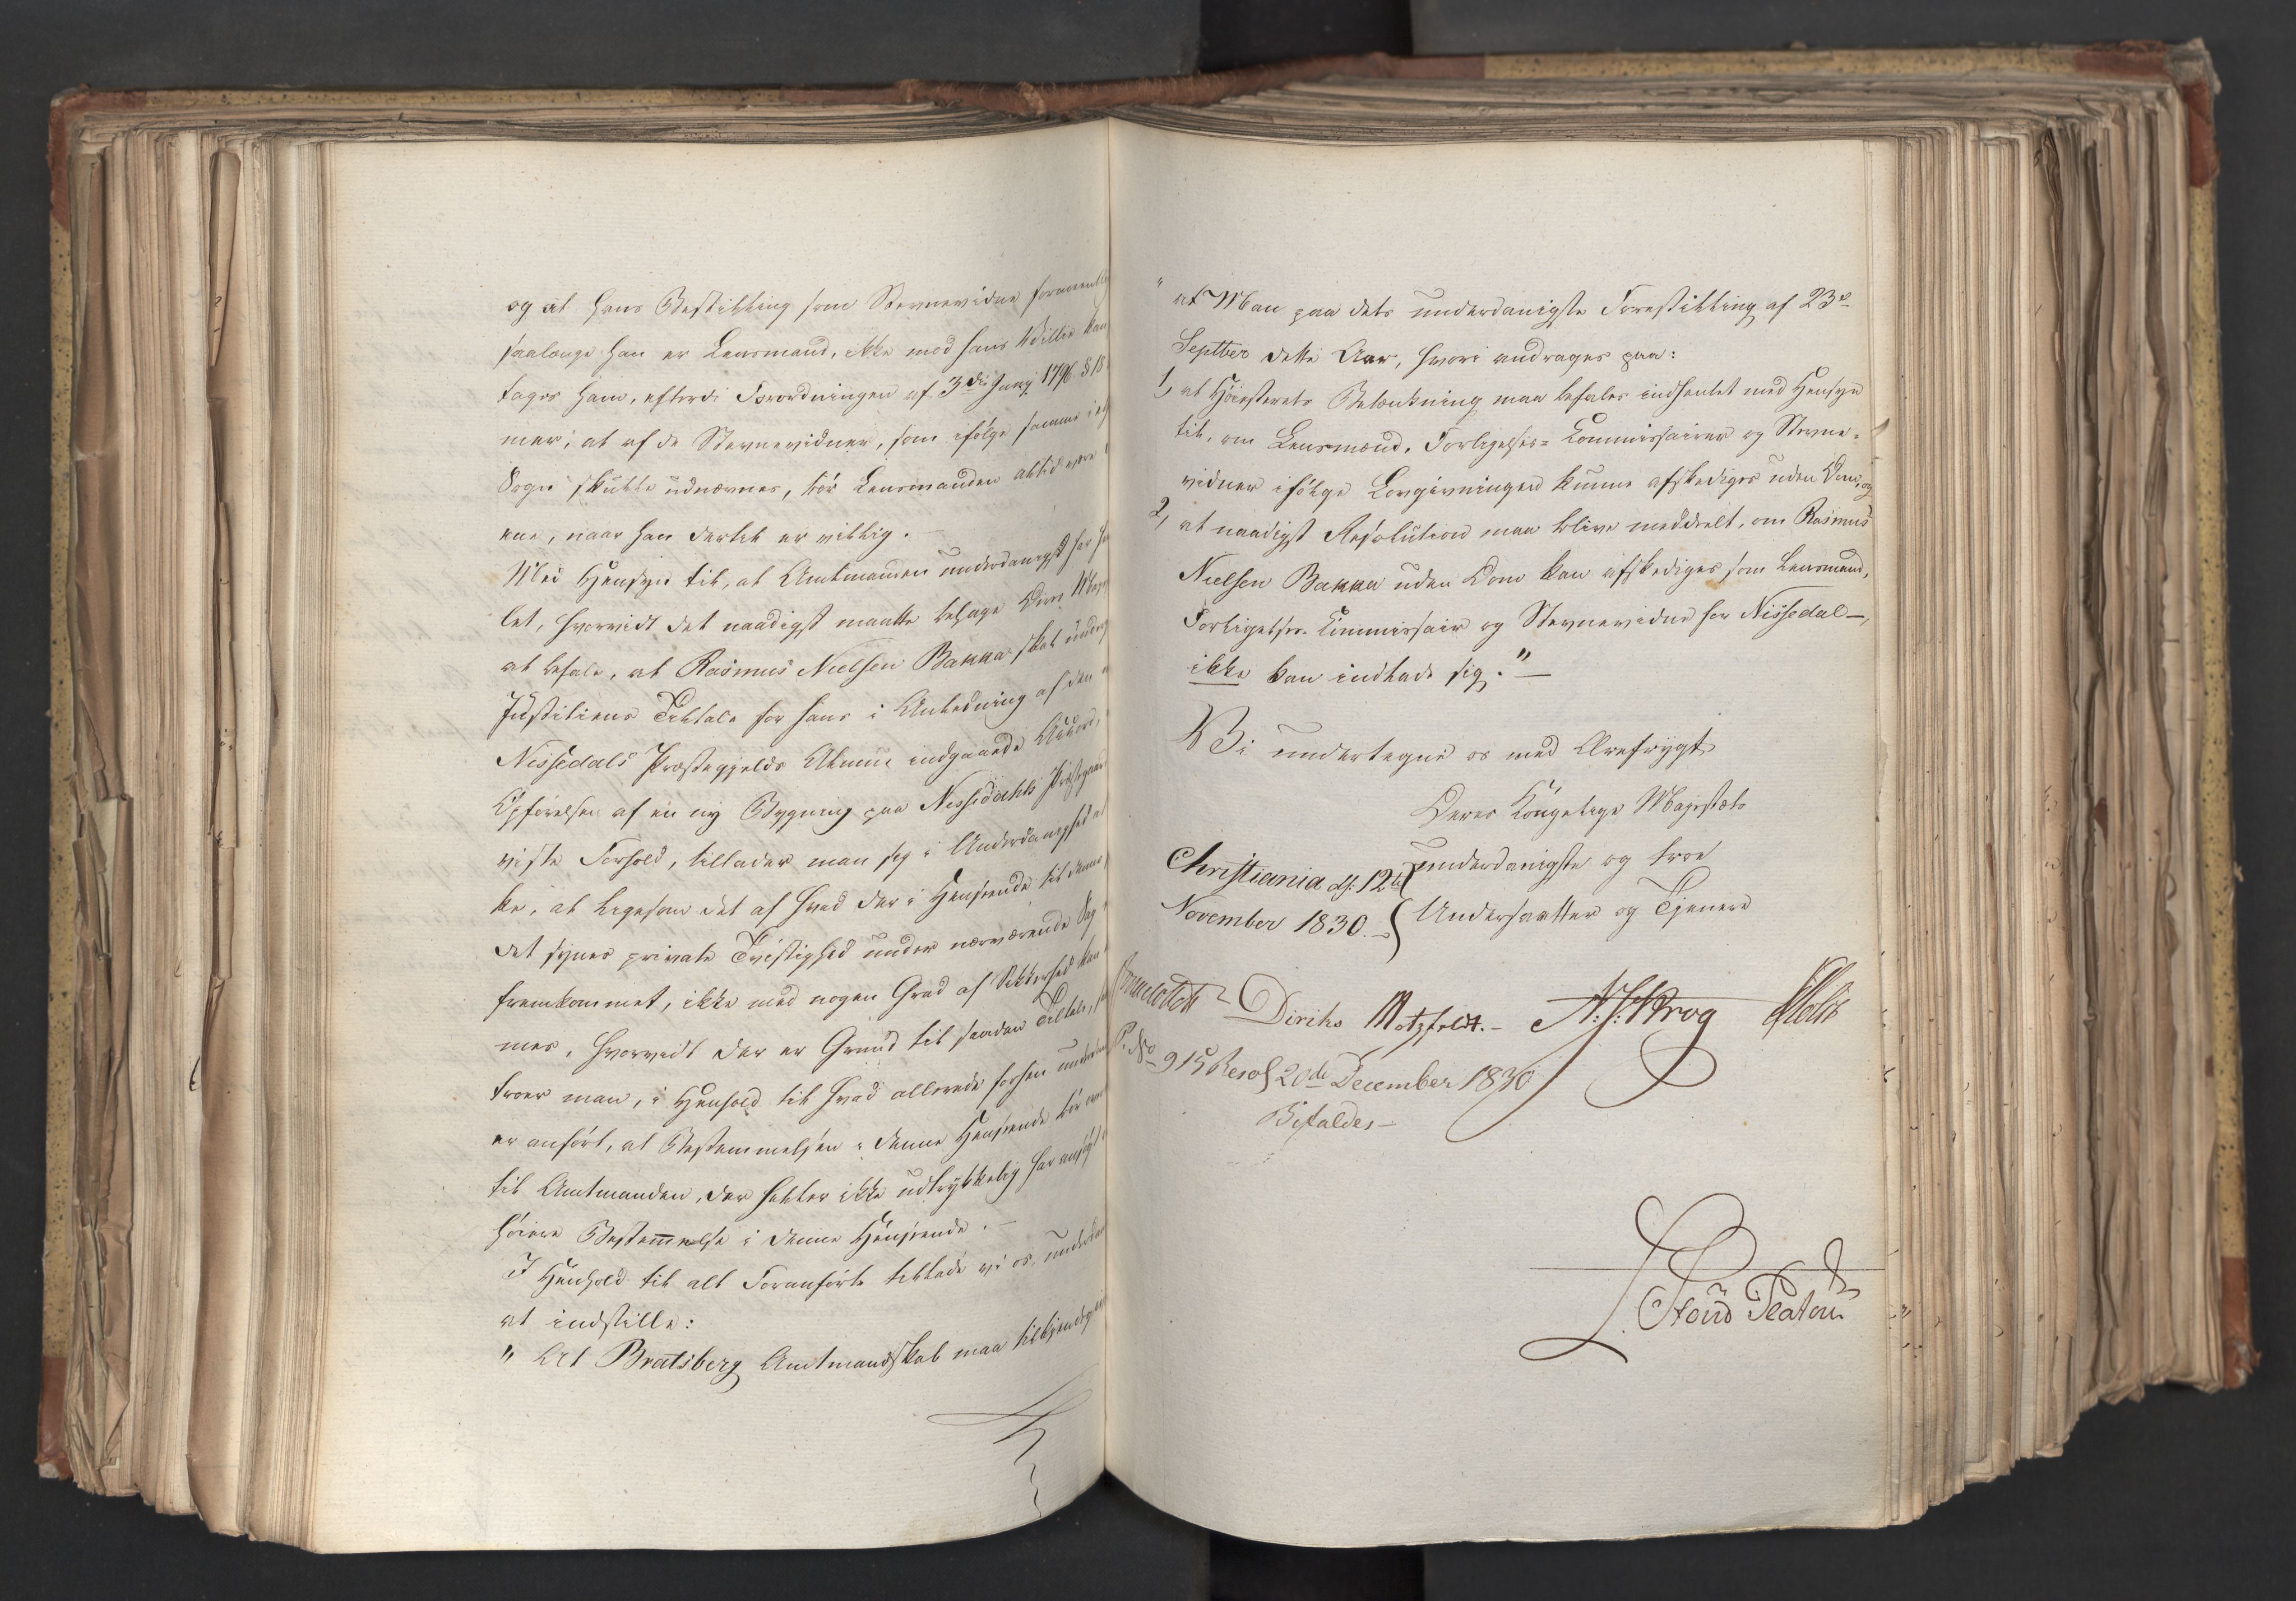 og at hans Bestilling som Stevnevidne formeentlig
saalænge han er Lensmand, ikke mod hans Villie kan
tages ham, efterdi Forordningen af 3die Juny 1796 § 18
mer, at af de Stevnevidner, som ifølge samme i et
Sogn skulle udnævnes, bør Lensmanden altid være
ene, naar han dertil er villig. –
Med Hensyn til, at Amtmanden underdanigst har
let, hvorvidt det naadigst maatte behage Deres Maje
at befale, at Rasmus Nielsen Bakka skal under
Justitiens Tiltale for hans i Anledning af den
Nissedals Præstegjelds Almue indgaaede Accord,
Opførelsen af en ny Bygning paa Nissedahls Præstegaard
viste Forhold, tillader man sig i Underdanighed at
ke, at ligesom det af hvad der i Henseende til denne
det synes private Tvistighed under nærværende Sag
fremkommet, ikke med nogen Grad af Sikkerhed kan
mes, hvorvidt der er Grund til saadan Tiltale,
troer man, i Henhold til hvad allerede forhen underda
er anført, at Bestemmelsen i denne Henseende bør
til Amtmanden, der heller ikke udtrykkelig har ansøgt
høiere Bestemmelse i denne Henseende. –
I Henhold til alt Foranførte tillade vi os underda
at indstille:
" At Bratsberg Amtmandskab maa tilkjendegives
" at Man paa dets underdanigste Forestilling af 23de
Septber dette Aar, hvori andrages paa:
1, at Høiesterets Betænkning maa befales indhentet med Hensyn
til, om Lensmænd, Forligelses-Kommissairer og Stevne-
vidner ifølge Lovgivningen kunne afskediges uden Dom, og
2, at naadigst Resolution maa blive meddeelt, om Rasmus
Nielsen Bakka uden Dom kan afskediges som Lensmand,
Forligelses-Kommissair og Stevnevidne for Nissedal –,
ikke kan indlade sig." –
Vi undertegne os med Ærefrygt
Deres Kongelige Majestæts
underdanigste og troe
Christiania d. 12te
Undersaatter og Tjenere
November 1830. –
Diriks Motzfeldt. – Krog Holst
P. No 915 Resol 20de December 1830
Bifaldes –